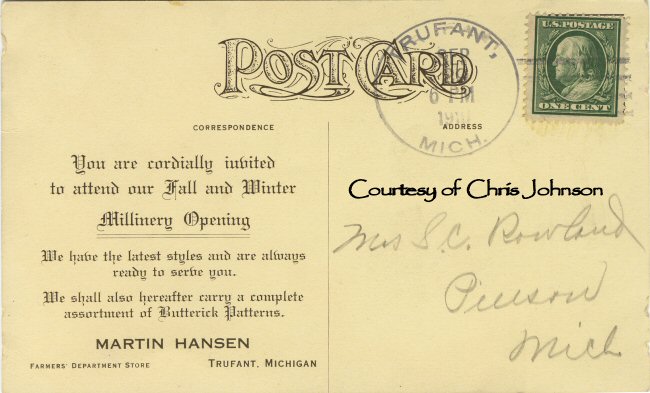 POST CARD
TRUFANT,
SEP
6 PM
MICH.
U.S. POSTAGE
ONE CENT
CORRESPONDENCE
ADDRESS
You are cordially invited
to attend our Fall and Winter
Millinery Opening
We have the latest styles and are always
ready to serve you.
We shall also hereafter carry a complete
assortment of Butterick Patterns.
MARTIN HANSEN
FARMERS' DEPARTMENT STORE TRUFANT, MICHIGAN
Courtesy of Chris Johnson
Mrs S.C. Rowland
Pierson
Mich